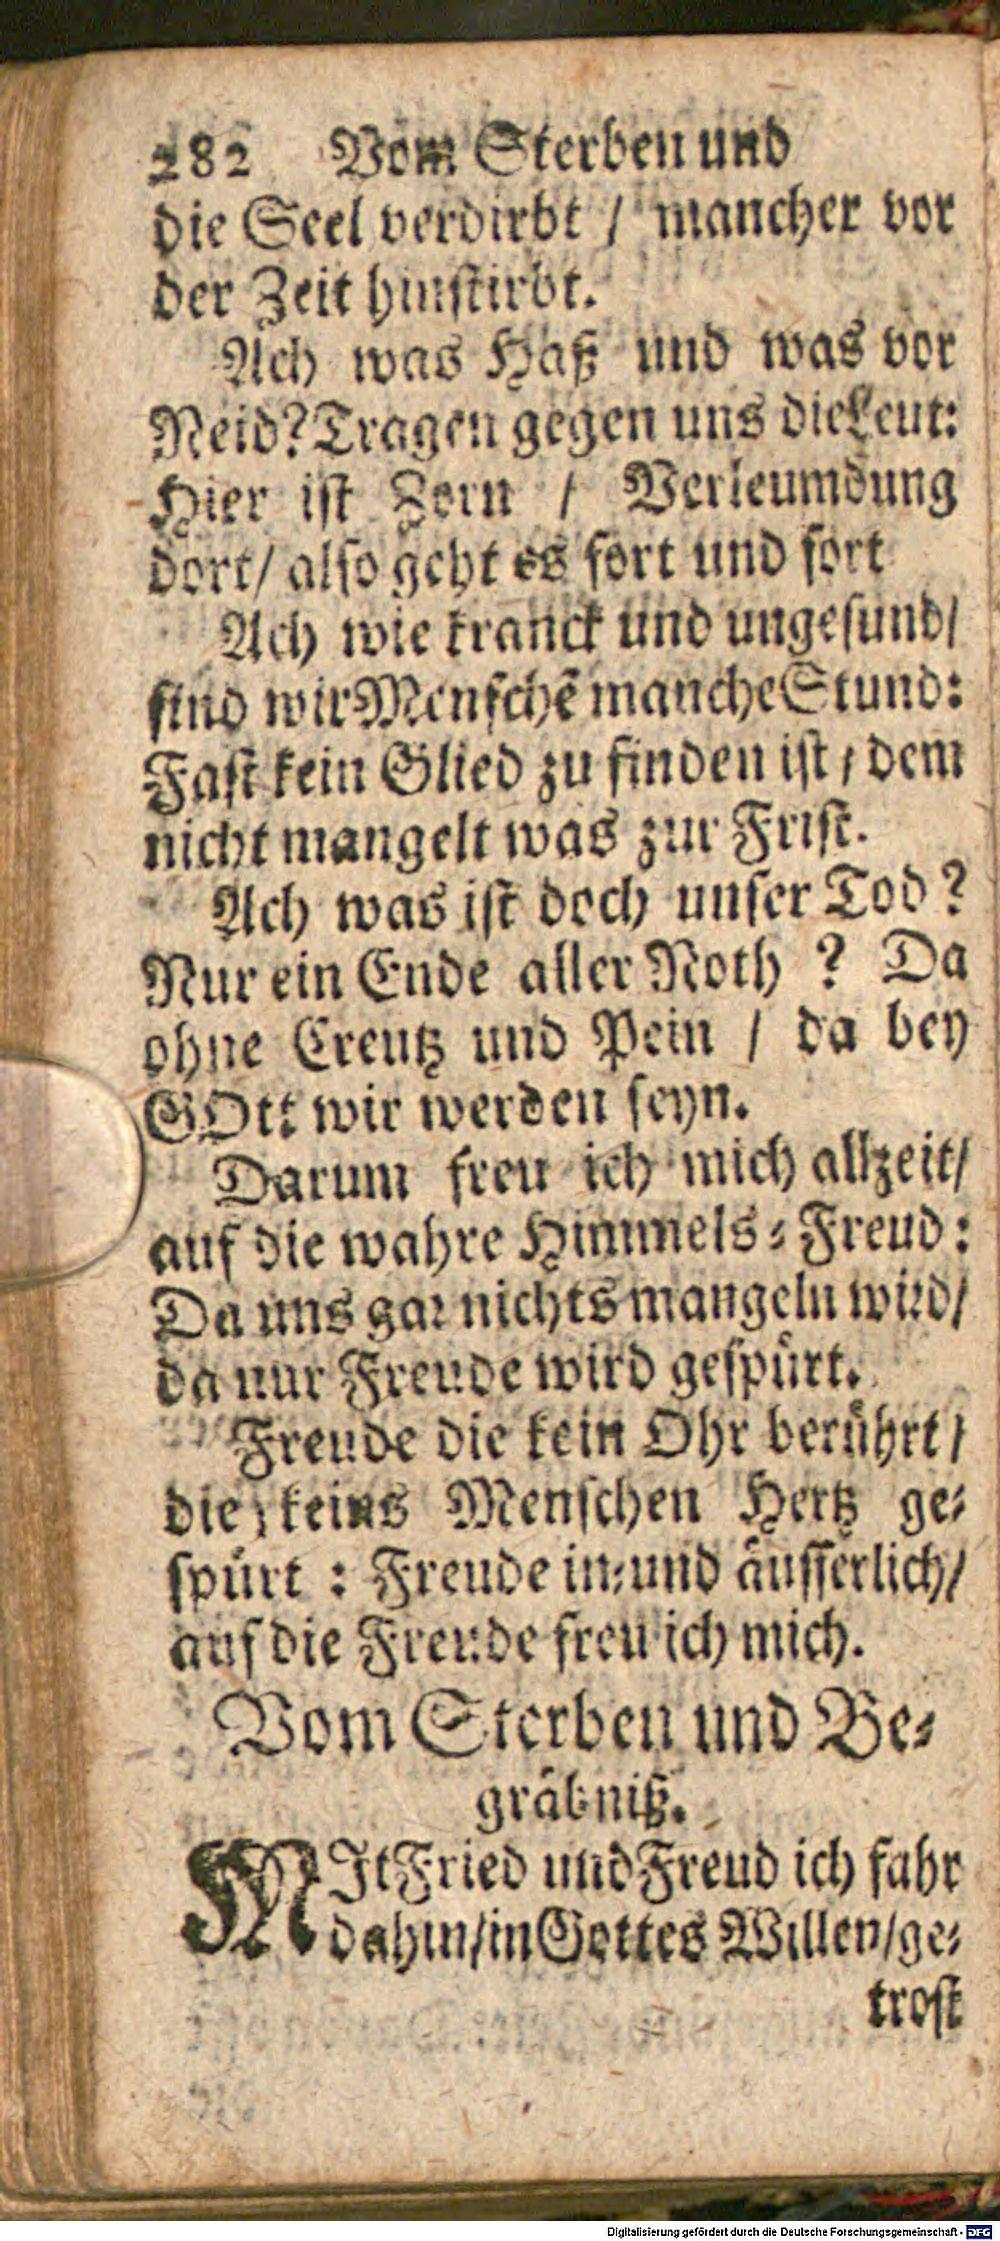 282 Vom Sterben und
die Seel verdirbt / mancher vor
der Zeit hinstirbt.
Ach was Haß und was vor
Neid? Tragen gegen uns die Leut:
Hier ist Zorn / Verleumdung
dort / also geht es fort und fort
Ach wie kranck und ungesund /
sind wir Menschẽ manche Stund:
Fast kein Glied zu finden ist / dem
nicht mangelt was zur Frist.
Ach was ist doch unser Tod?
Nur ein Ende aller Noth? Da
ohne Creutz und Pein / da bey
GOtt wir werden seyn.
Darum freu ich mich allzeit /
auf die wahre Himmels-Freud:
Da uns gar nichts mangeln wird /
da nur Freude wird gespürt.
Freude die kein Ohr berührt /
die keins Menschen Hertz ge-
spürt: Freude in- und äusserlich /
auf die Freude freu ich mich.
Vom Sterben und Be-
gräbniß.
MIt Fried und Freud ich fahr
dahin / in Gottes Willen / ge-
trost
Digitalisierung gefördert durch die Deutsche Forschungsgemeinschaft - DFG